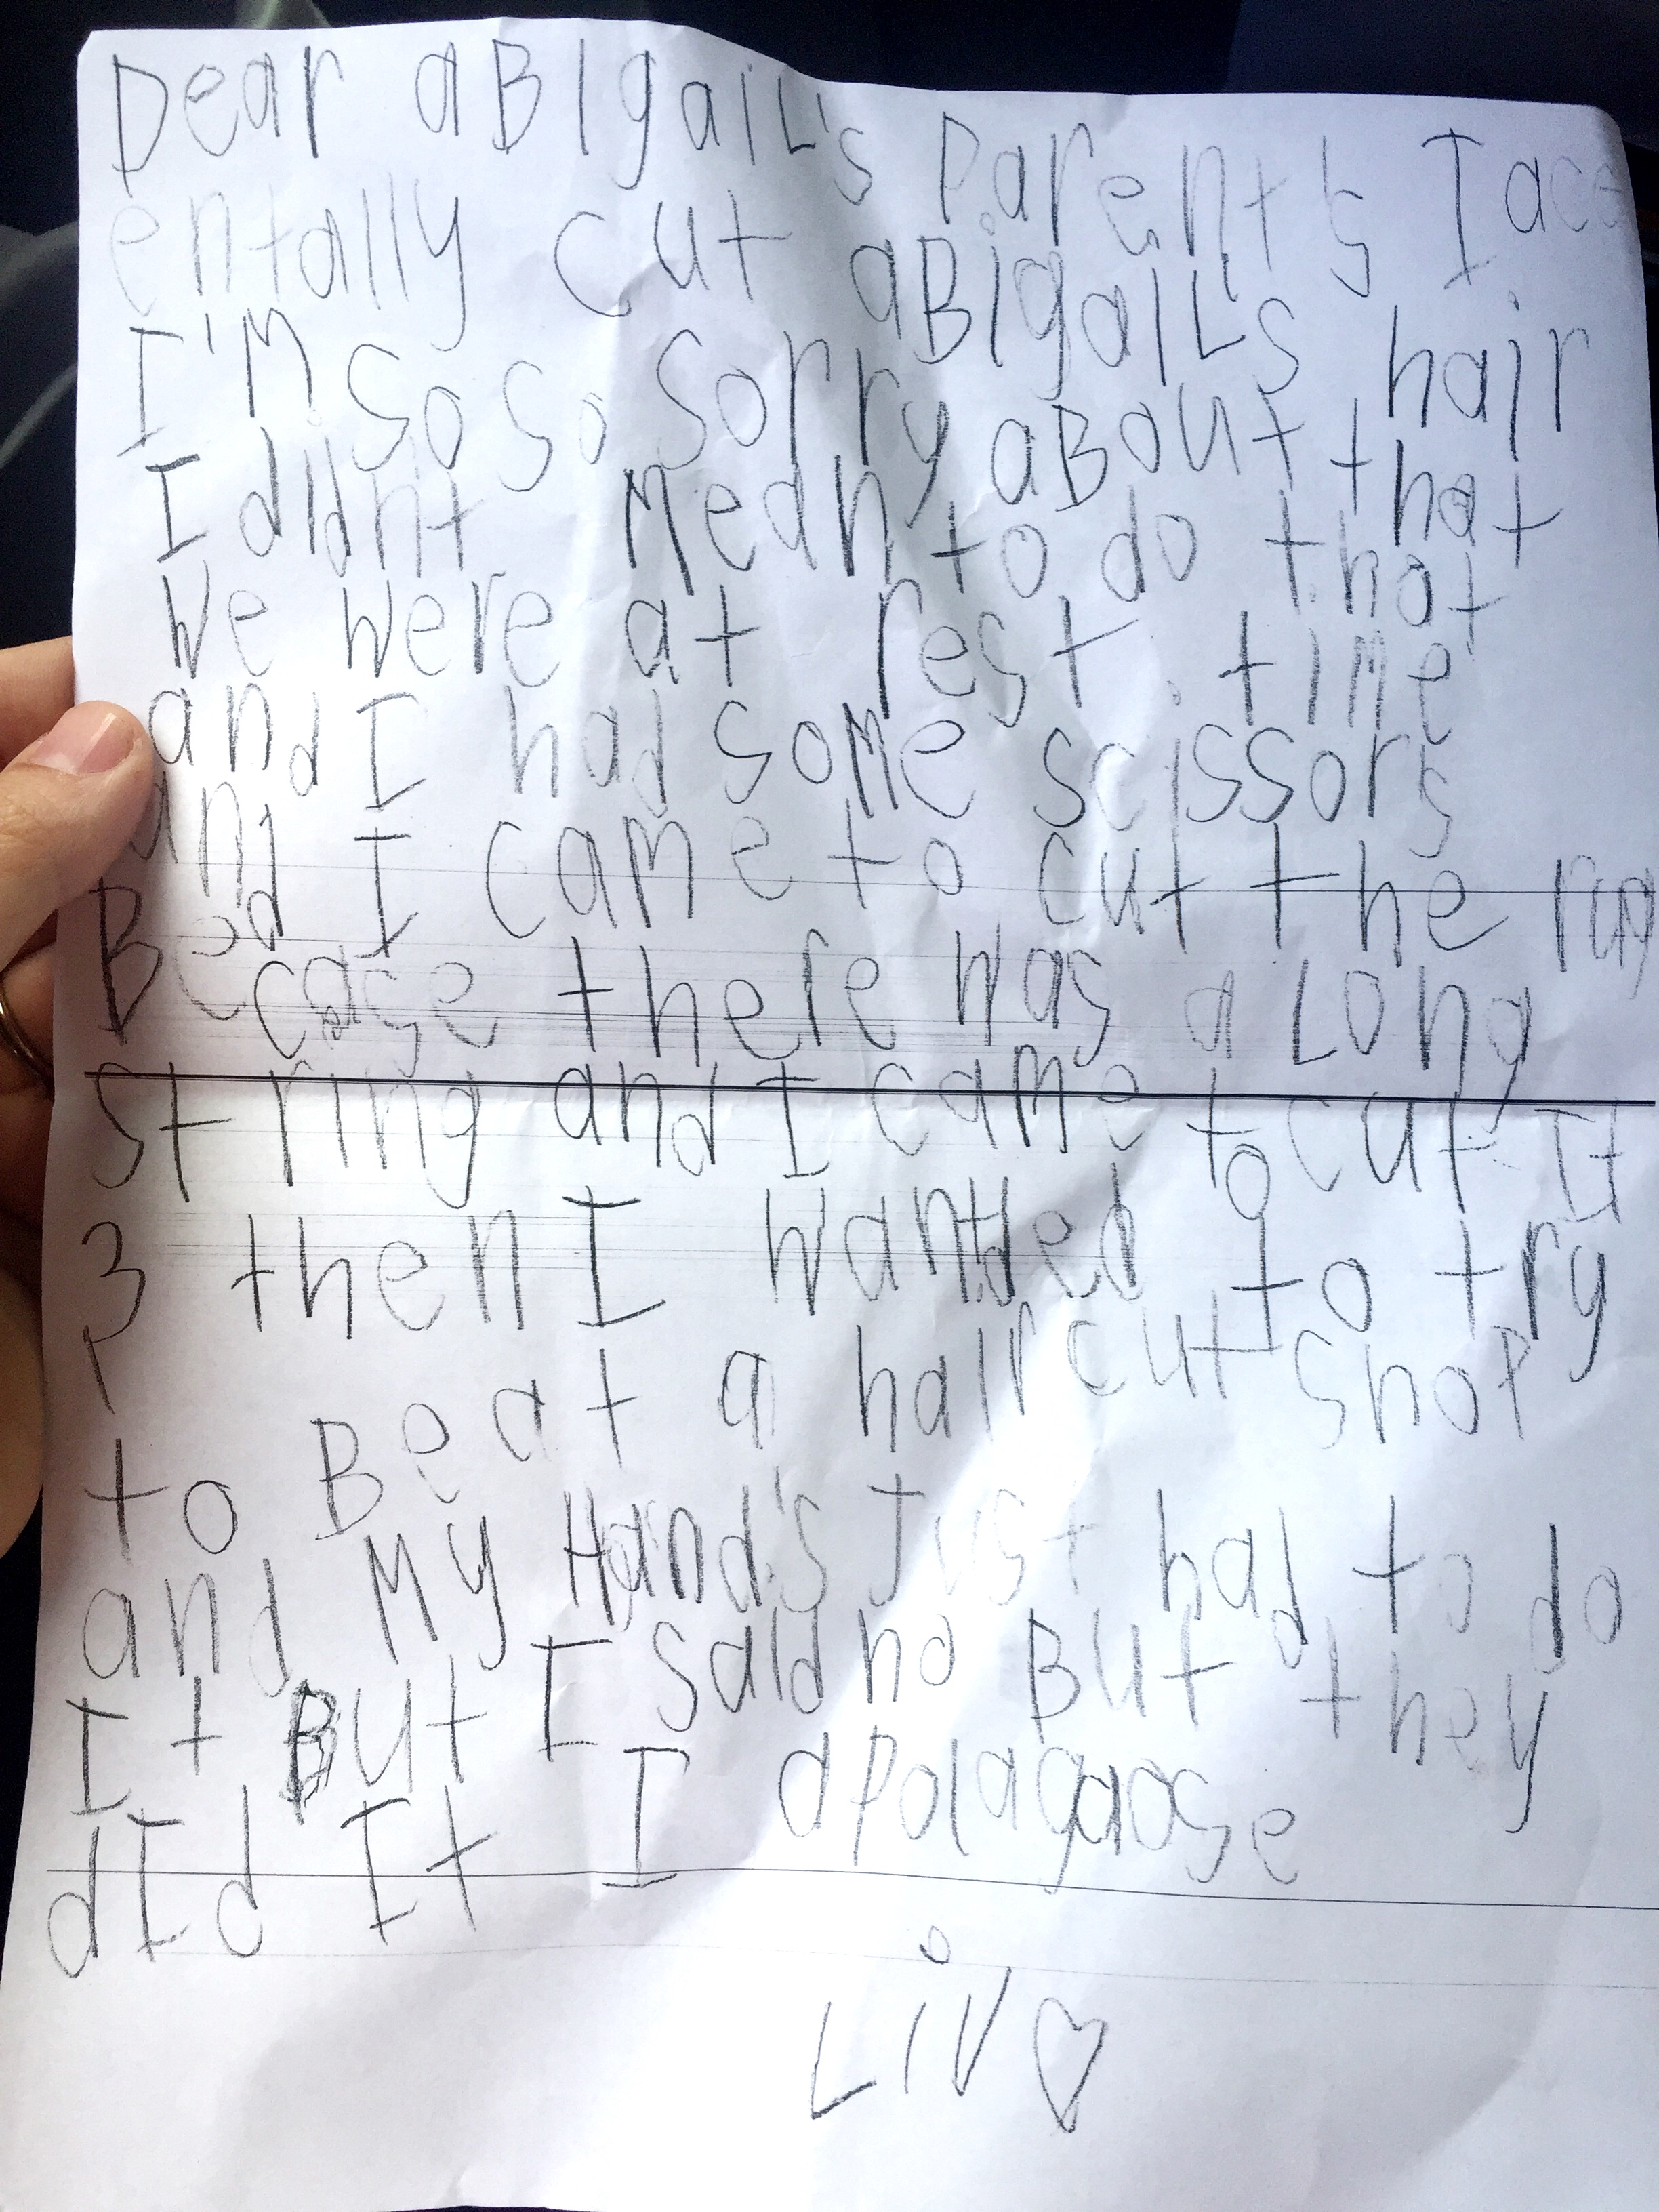 Dear aBIgaiL's Parents I acc
entally cut aBigaiL's hair
I'm so so sorry aBout that
I didnt Mean to do that
We were at rest time
and I had some scissors
and I came to cut the rug
Becase there was a Long
string and I came to cut It
then I wanted to try
to Be at a haircut Shop
and My Hand's Just had to do
It But I SaId no But they
dId It I aPolagaose
Liv ♡